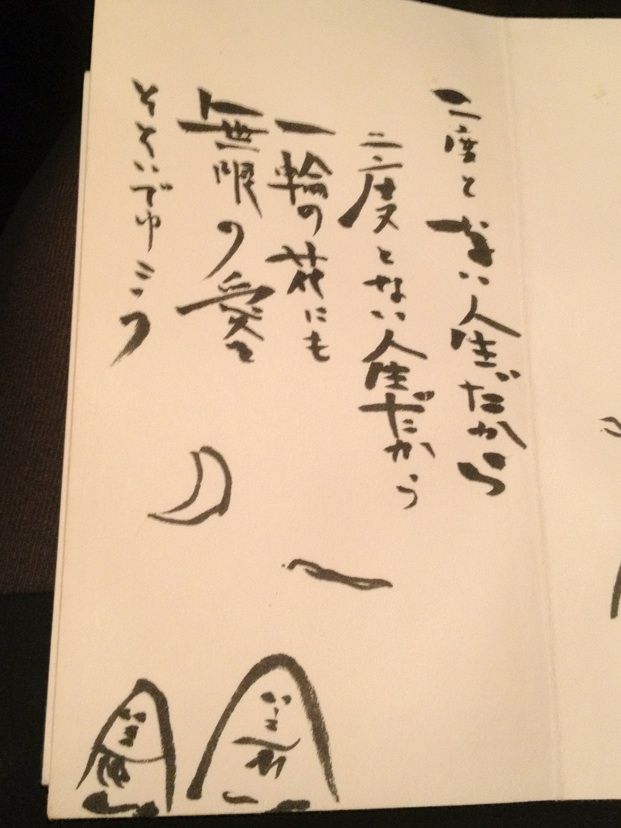 二度とない人生だから
二度とない人生だから
一輪の花にも
無限の愛を
そそいでゆこう